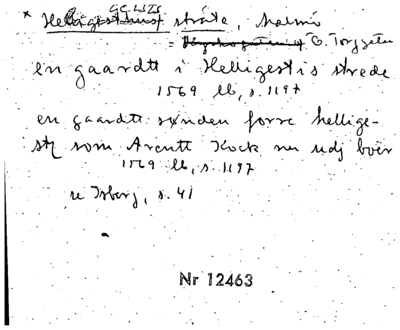 * Helligestis stræte, Malmö
= Ö. Torggatan
en gaardtt i Helligestis strede
1569 lb, s. 1197
en gaardtt sønden forre hellige-
stz som Arentt Kock nu udj boer
1569 lb, s. 1197
Isberg, s. 41
Nr 12463